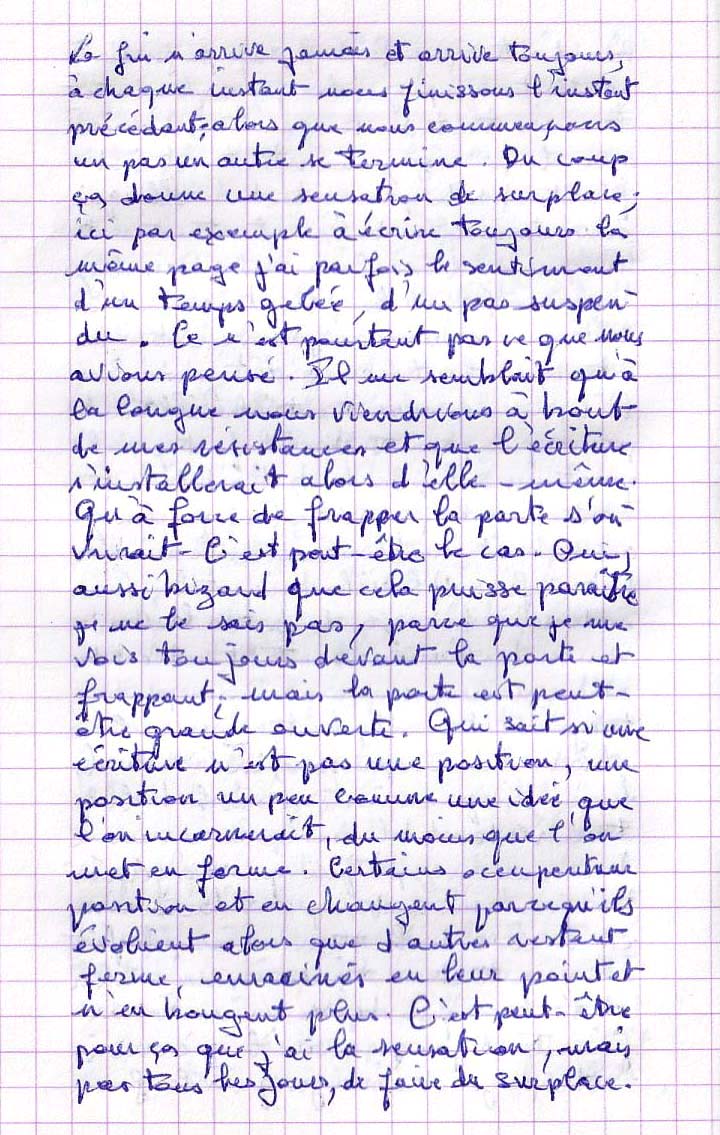 La fin n'arrive jamais et arrive toujours,
à chaque instant nous finissons l'instant
précédant; alors que nous commençons
un pas un autre se termine. Du coup
ça donne une sensation de surplace;
ici par exemple à écrire toujours la
même page j'ai parfois le sentiment
d'un temps gelée, d'un pas suspen-
du. Ce n'est pourtant pas ce que nous
avions pensé. Il me semblait qu'à
la longue nous viendrions à bout
de mes résistances et que l'écriture
s'installerait alors d'elle-même.
Qu'à force de frapper la porte s'ou-
vrirait. C'est peut-être le cas. Oui,
aussi bizard que cela puisse paraître
je ne le sais pas, parce que je me
vois toujours devant la porte et
frappant; mais la porte est peut-
être grande ouverte. Qui sait si une
écriture n'est pas une position, une
position un peu comme une idée, que
l'on incarnerait, du moins que l'on
met en forme. Certains occupent une
position et en changent parce qu'ils
évoluent alors que d'autres restent
ferme, enracinés en leur point et
n'en bougent plus. C'est peut-être
pour ça que j'ai la sensation, mais
pas tous les jours, de faire du surplace.